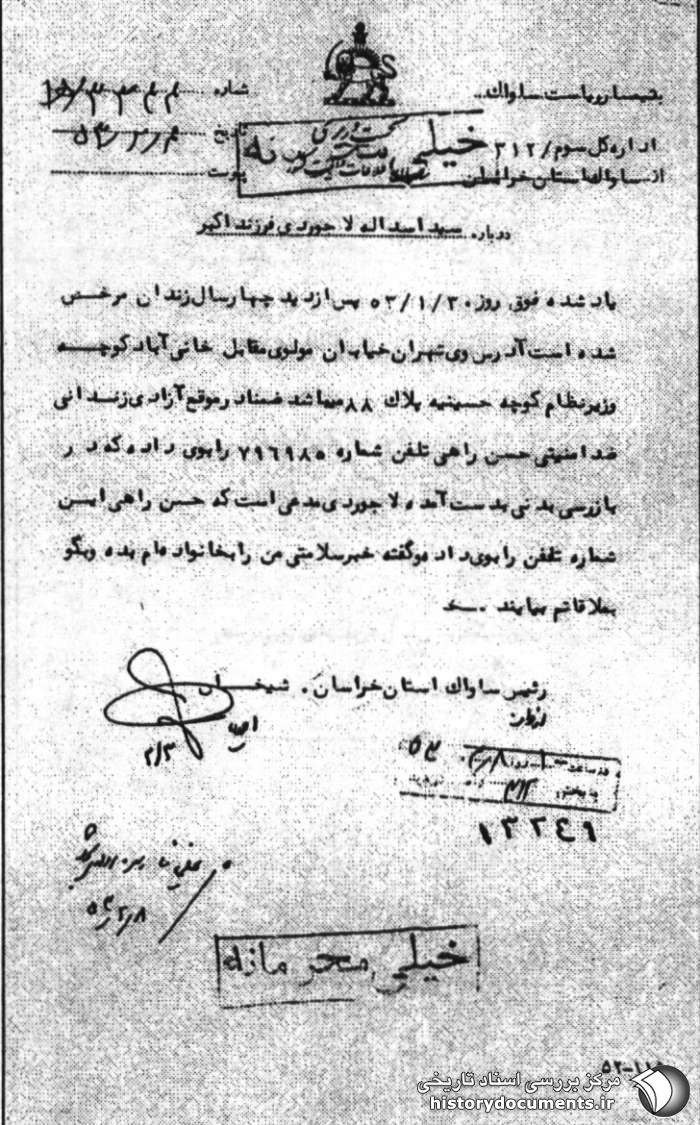 به تیمسار ریاست ساواک
شماره
اداره کل سوم/ ۳۱۲
تاریخ ۵۳/۲/۴
از ساواک استان خراسان
پیوست
خیلی محرمانه
درباره سید اسداله لاجوردی فرزند اکبر
یاد شده فوق روز ۵۳/۱/۲۰ پس از دید چهار سال زندان مرخص
شده است آدرس وی تهران خیابان مولوی مقابل خانی آباد کوچه
وزیر نظام کوچه حسینیه پلاک ۸۸ میباشد ضمنا در موقع آزادی زندانی
ضد امنیتی حسن راهی تلفن شماره ۷۹۶۹۸۵ را بوی داده که در
بازرسی بدنی بدست آمده لاجوردی مدعی است که حسن راهی ایسن
شماره تلفن را بوی داده و گفته خبر سلامتی من را بخانواده ام بده و بگو
بملاقاتم بیایند .
رئیس ساواک استان خراسان . شیخان
۲/۳
۱۳۲۴۹
۵۳/۲/۸
خیلی محرمانه
۵۲-۱۱۵
مرکز بررسی اسناد تاریخی
historydocuments.ir